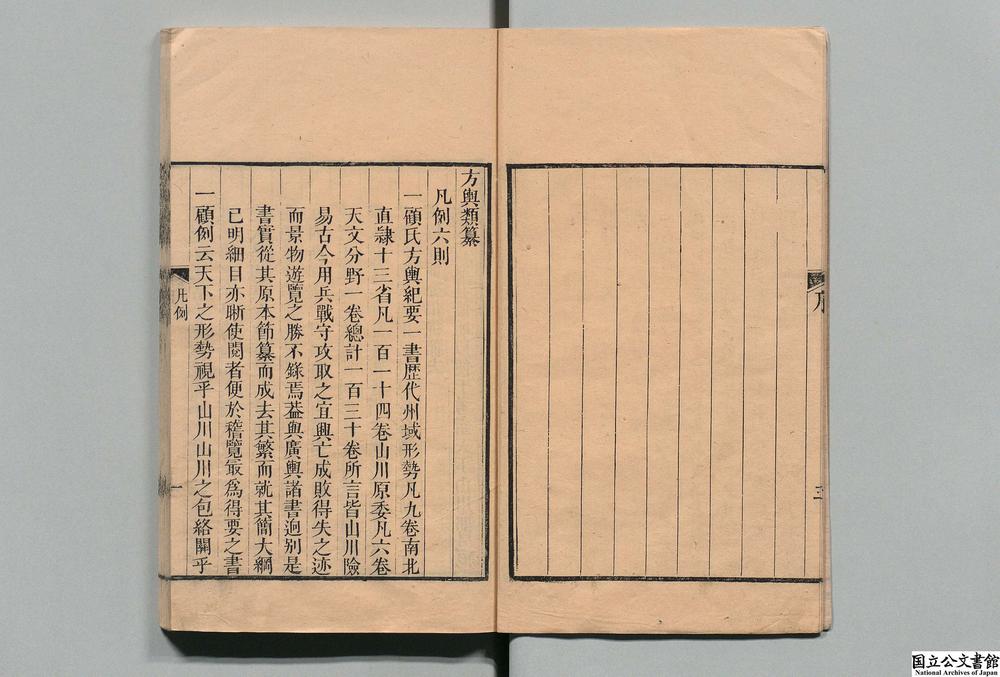 序
三
方輿類纂
凡例六則
一顧氏方輿紀要一書歷代州域形勢凡九卷南北
直隷十三省凡一百一十四卷山川原委凡六卷
天文分野一卷總計一百三十卷所言皆山川險
易古今用兵戰守攻取之宜興亡成敗得失之迹
而景物遊覽之勝不錄焉葢與廣輿諸書迥别是
書實從其原本節纂而成去其繁而就其簡大綱
已明細目亦晰使閱者便於稽覽最爲得要之書
一顧例云天下之形勢視乎山川山川之包絡關乎
凡例
一
国立公文書館
National Archives of Japan